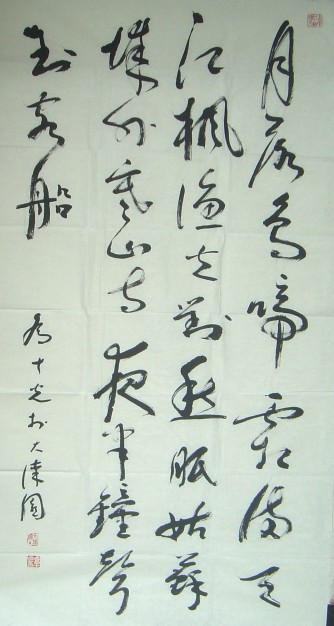 月落乌啼霜满天
江枫渔火对愁眠姑苏
城外寒山寺夜半钟声
到客船